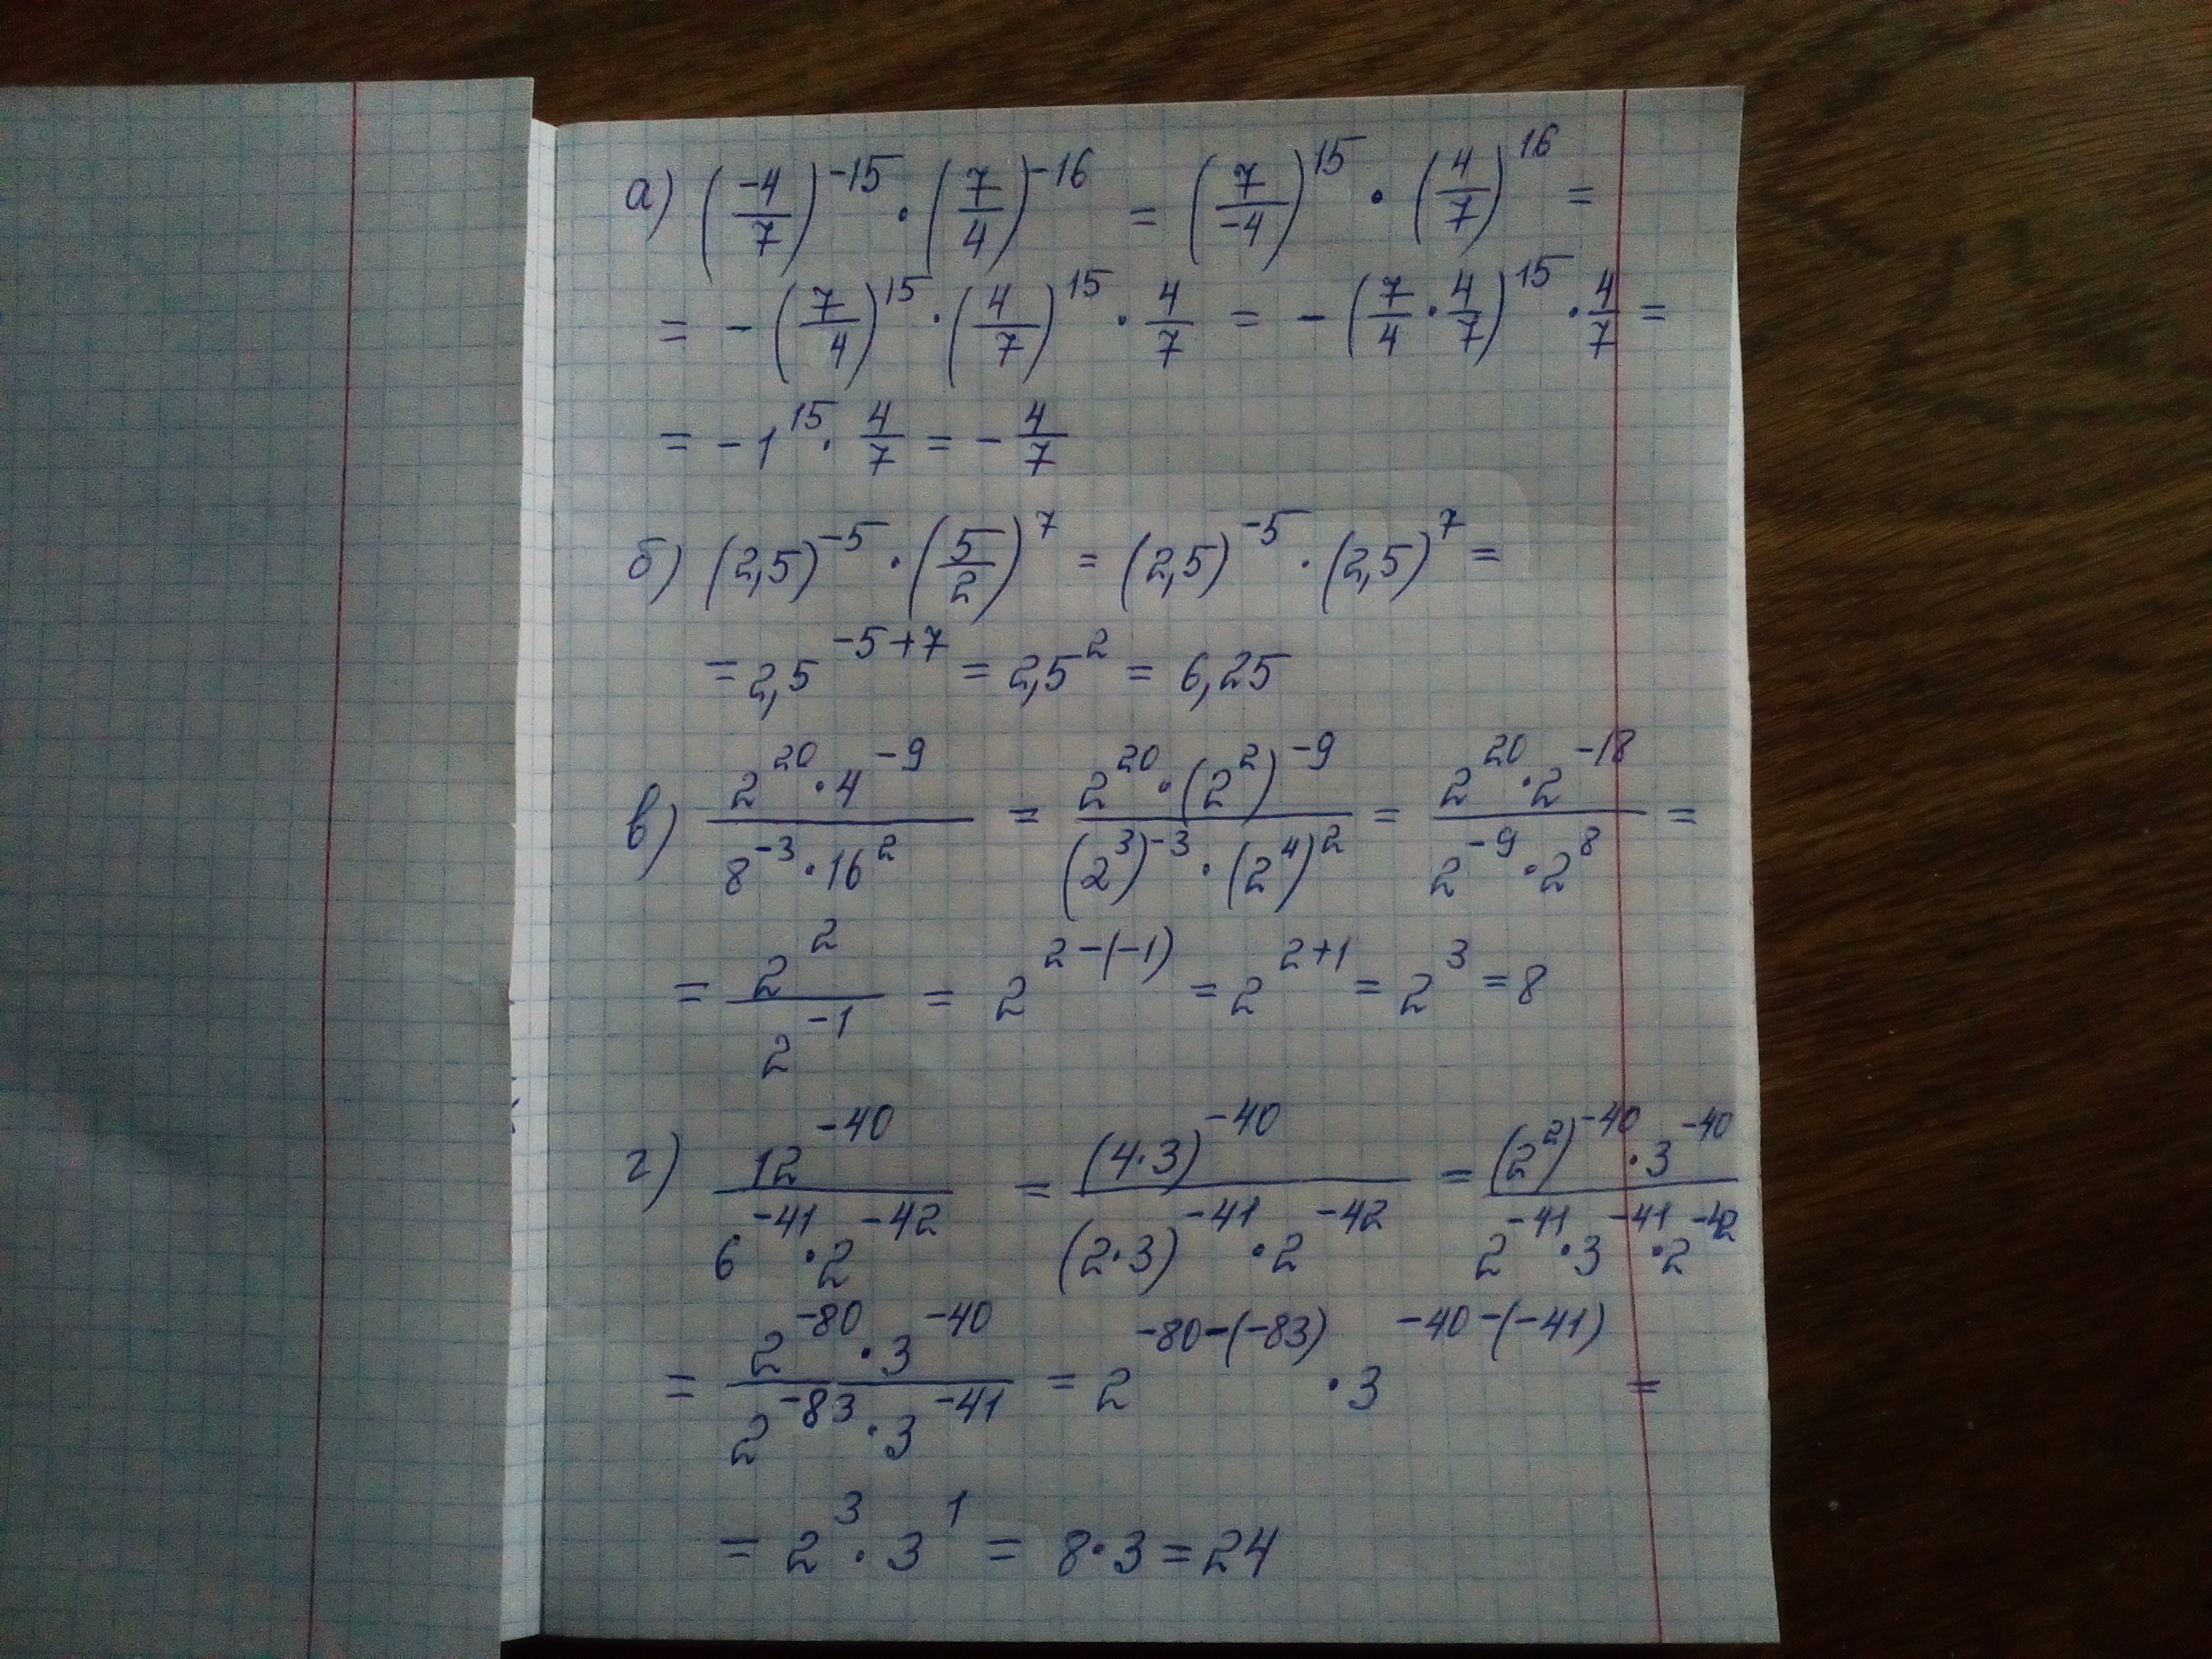 а) (-4/7)^-15 · (7/4)^-16 = (7/-4)^15 · (4/7)^16 =
= -(7/4)^15 · (4/7)^15 · 4/7 = -(7/4 · 4/7)^15 · 4/7 =
= -1^15 · 4/7 = -4/7
б) (2,5)^-5 · (5/2)^7 = (2,5)^-5 · (2,5)^7 =
= 2,5^-5+7 = 2,5^2 = 6,25
в) 2^20 · 4^-9 / 8^-3 · 16^2 = 2^20 · (2^2)^-9 / (2^3)^-3 · (2^4)^2 = 2^20 · 2^-18 / 2^-9 · 2^8 =
= 2^2 / 2^-1 = 2^2-(-1) = 2^2+1 = 2^3 = 8
г) 12^-40 / 6^-41 · 2^-42 = (4·3)^-40 / (2·3)^-41 · 2^-42 = (2^2)^-40 · 3^-40 / 2^-41 · 3^-41 · 2^-42
= 2^-80 · 3^-40 / 2^-83 · 3^-41 = 2^-80-(-83) · 3^-40-(-41) =
= 2^3 · 3^1 = 8·3 = 24